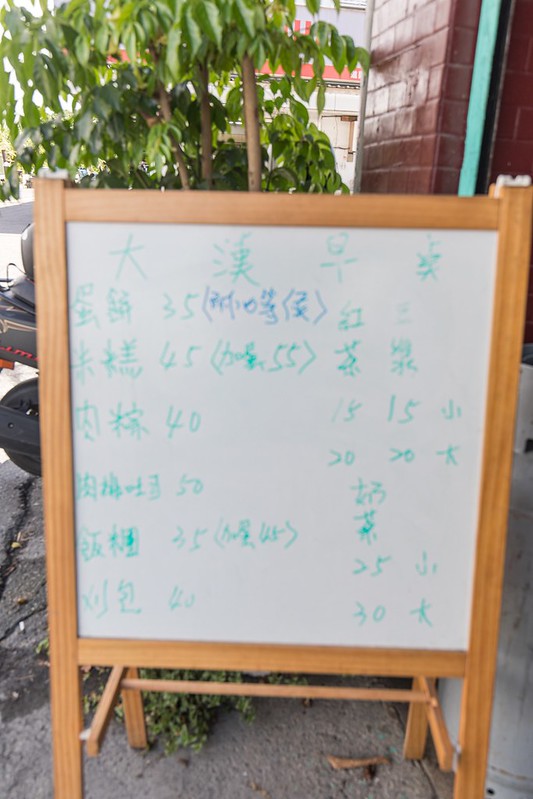 大漢早桌
蛋餅 35
米糕 45(加蛋55)
肉粽 40
肉排吐司 50
飯糰 35(加蛋45)
刈包 40
紅
茶
15 15 小
20 20 大
奶
茶
25 小
30 大